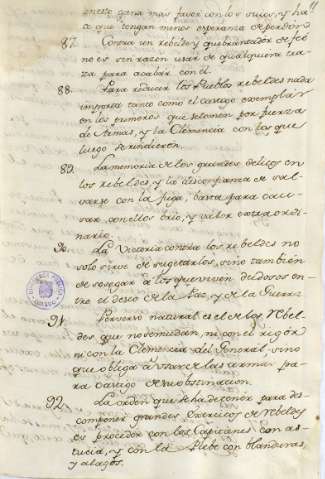 mas favor con los suios, y ha
que tengan menos esperanza de perdon
87. Contra un rebelde y quebrantador de fee
no es sin razon usar de qualquiera tra
za para acabar con el.
88. Para reducir los Pueblos rebeldes nada
importa tanto como el castigo exemplar
en los primeros que se tomen por fuerza
de Armas, y la Clemencia con los que
luego se rindieren.
89. La memoria de los grandes delitos en
los rebeldes, y la desconfianza de sal
varse con la fuga, basta para cau
sar en ellos brio, y valor extraordi
nario.
90. La Victoria contra los rebeldes no
solo sirve de sugetarlos, sino tambien
de sosegar a los que viven dudosos en
tre el deseo de la Paz, y de la Guerra.
91. Perverso natural es el de los Rebel
des que no se miedan, ni con el rigor
ni con la Clemencia del General, sino
que obliga a usar de las armas pa
ra castigo de su obstinacion.
92. La orden que se ha de tener para des
componer grandes de Rebeldes
es proceder con los Capitanes con as
tucia, y con la Plebe con blanduras,
y alagos.